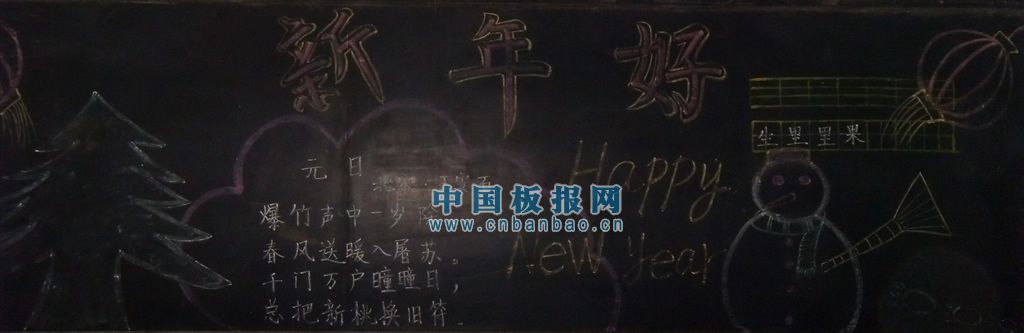 新年好
坐里里果
元日
爆竹声中一岁
春风送暖入屠苏。
千门万户瞳瞳日,
总把新桃换旧符.
Happy
New Year
中国板报网
www.cnbanbao.cn